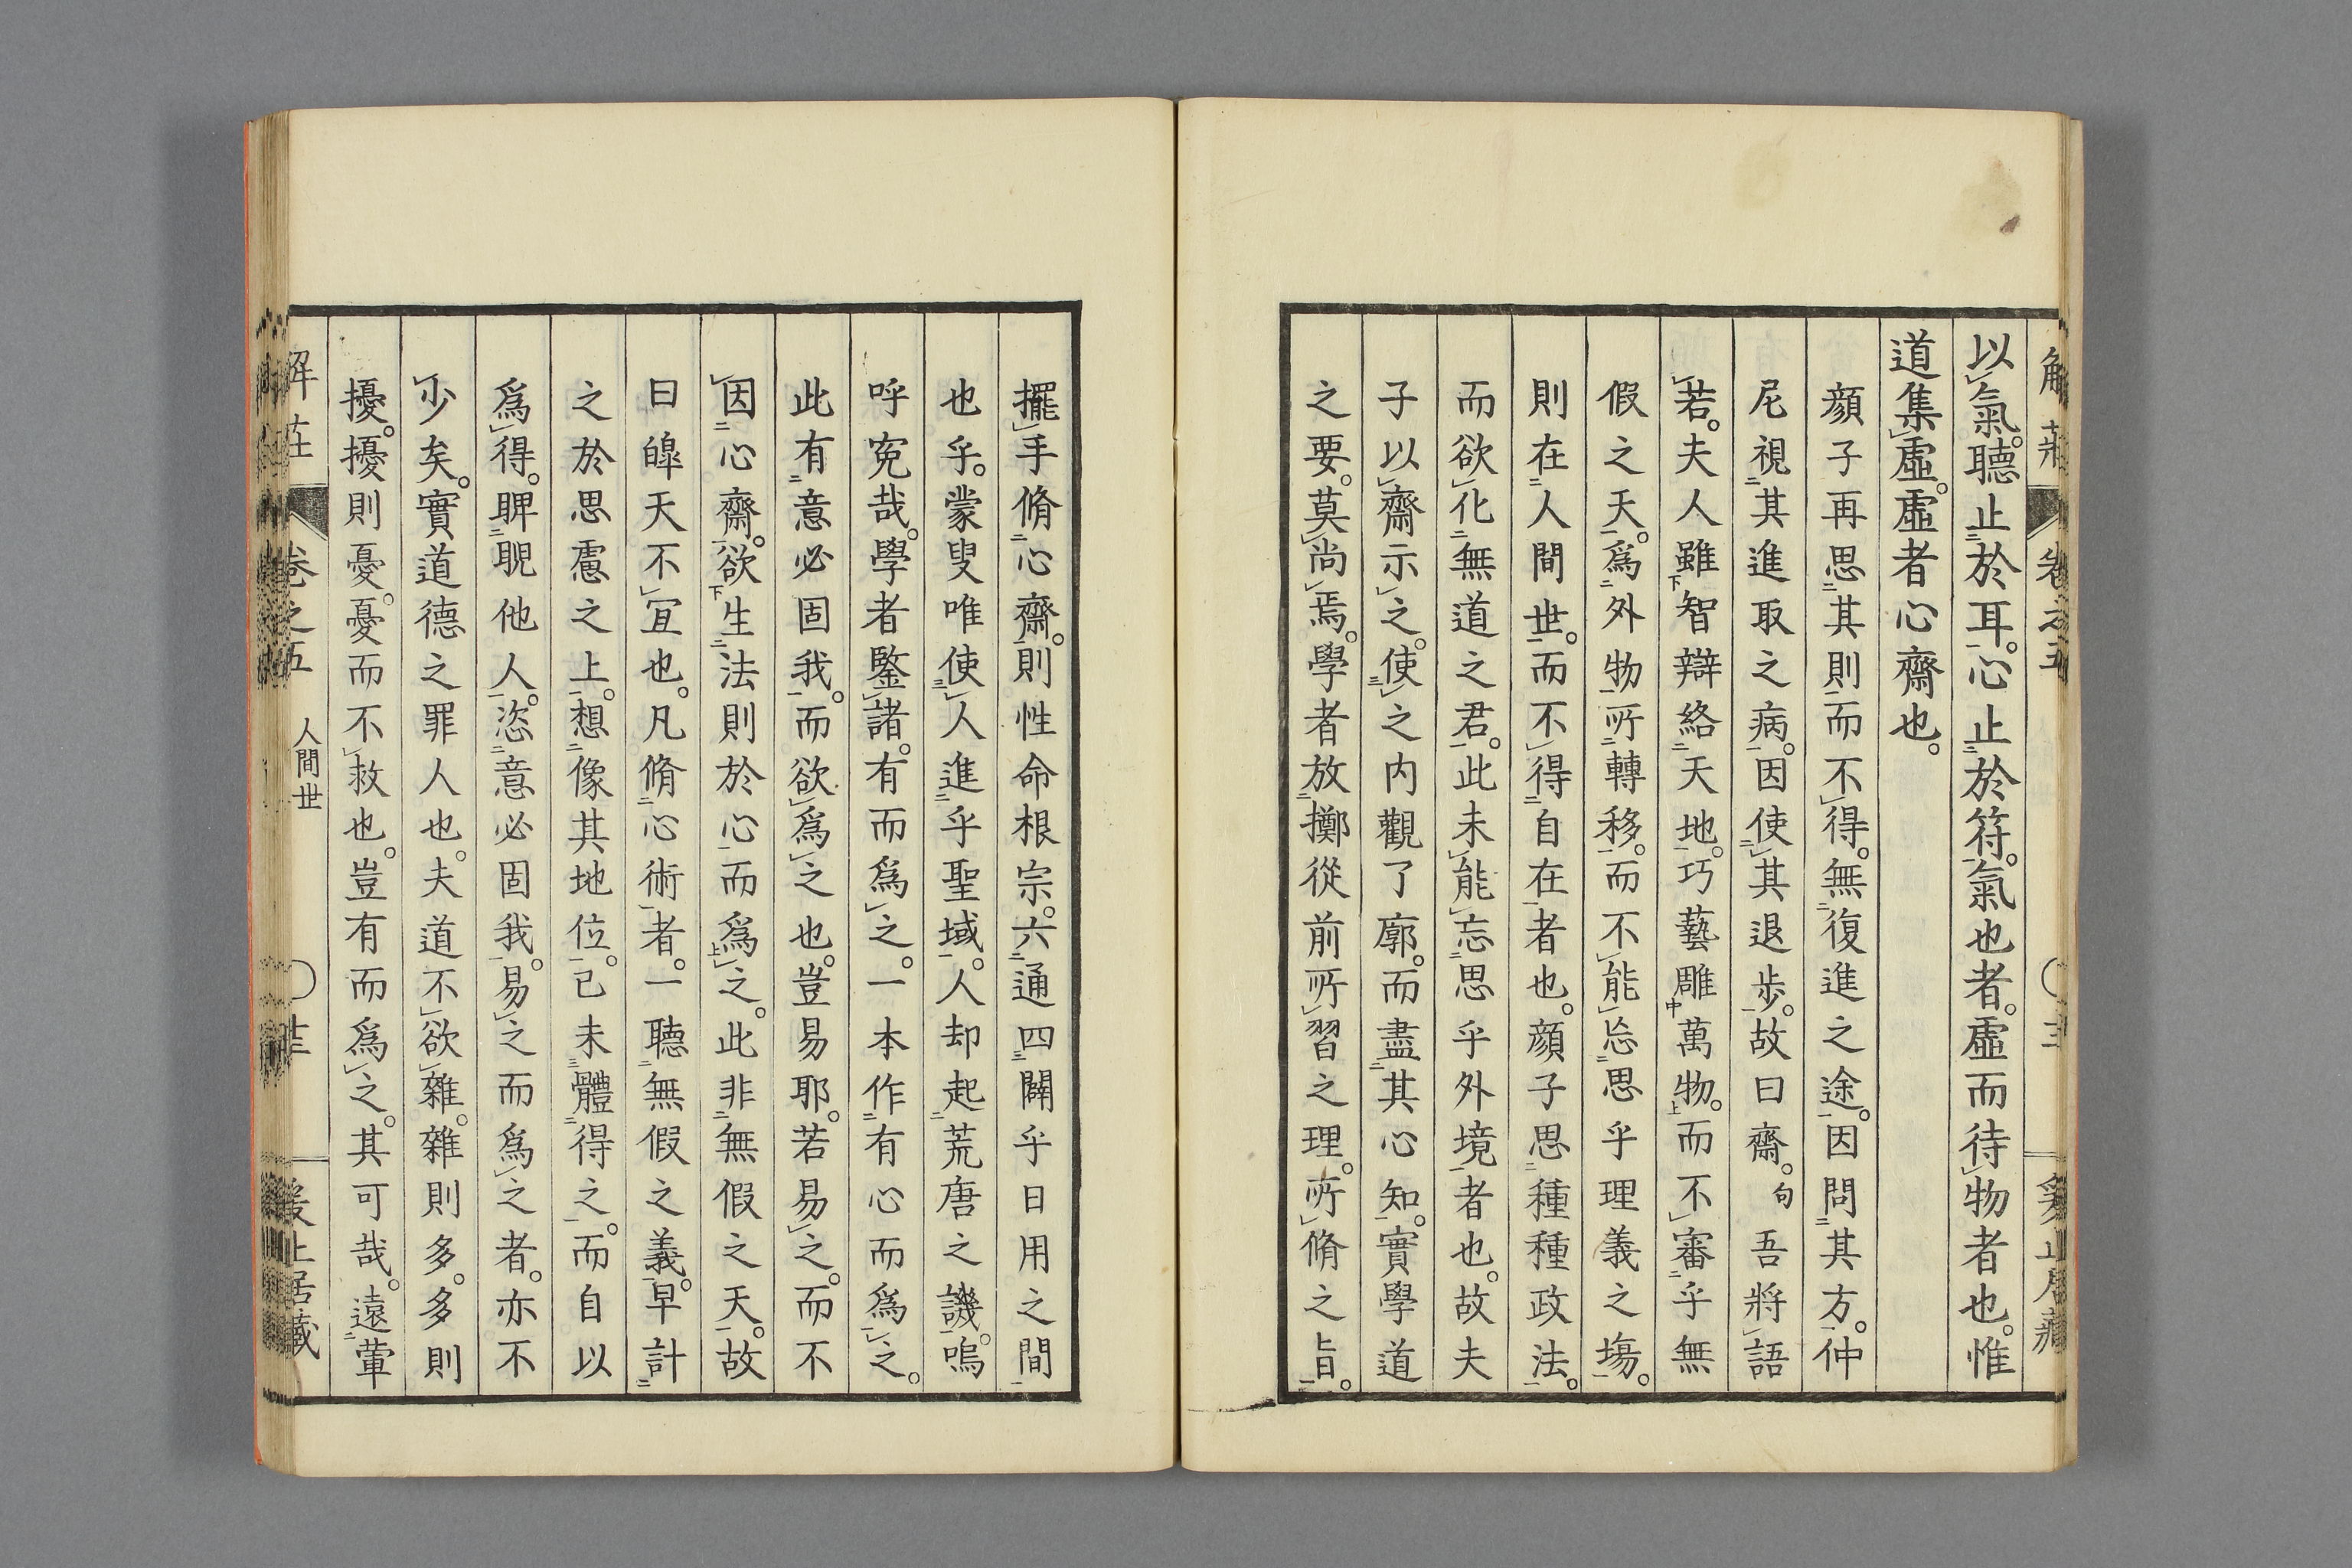 以氣。聽止於耳。心止於符。氣也者。虛而待物者也。惟
道集虛。虛者心齋也。
顏子再思其則而不得。無復進之途。因問其方。仲
尼視其進取之病。因使其退步。故曰齋。句吾將語
若。夫人雖智辯絡天地。巧藝雕萬物。而不審乎無
假之天。爲外物所轉移。而不能忘思乎理義之塲。
則在人間世。而不得自在者也。顏子思種種政法。
而欲化無道之君。此未能忘思乎外境者也。故夫
子以齋示之。使之内觀了廓。而盡其心知。實學道
之要。莫尚焉。學者放擲從前所習之理。所脩之旨。
擺手脩心齋。則性命根宗。六通四闢乎日用之間
也乎。蒙叟唯使人進乎聖域。人却起荒唐之譏。嗚
呼寃哉。學者鑒諸。有而爲之。一本作有心而爲之。
此有意必固我。而欲爲之也。豈易耶。若易之。而不
因心齋。欲生法則於心而爲之。此非無假之天。故
曰皥天不宜也。凡脩心術者。一聽無假之義。早計
之於思慮之上。想像其地位。已未體得之。而自以
爲得。睥睨他人。恣意必固我。易之而爲之者。亦不
少矣。實道德之罪人也。夫道不欲雜。雜則多。多則
擾。擾則憂。憂而不救也。豈有而爲之。其可哉。遠葷
解莊 卷之五 人間世